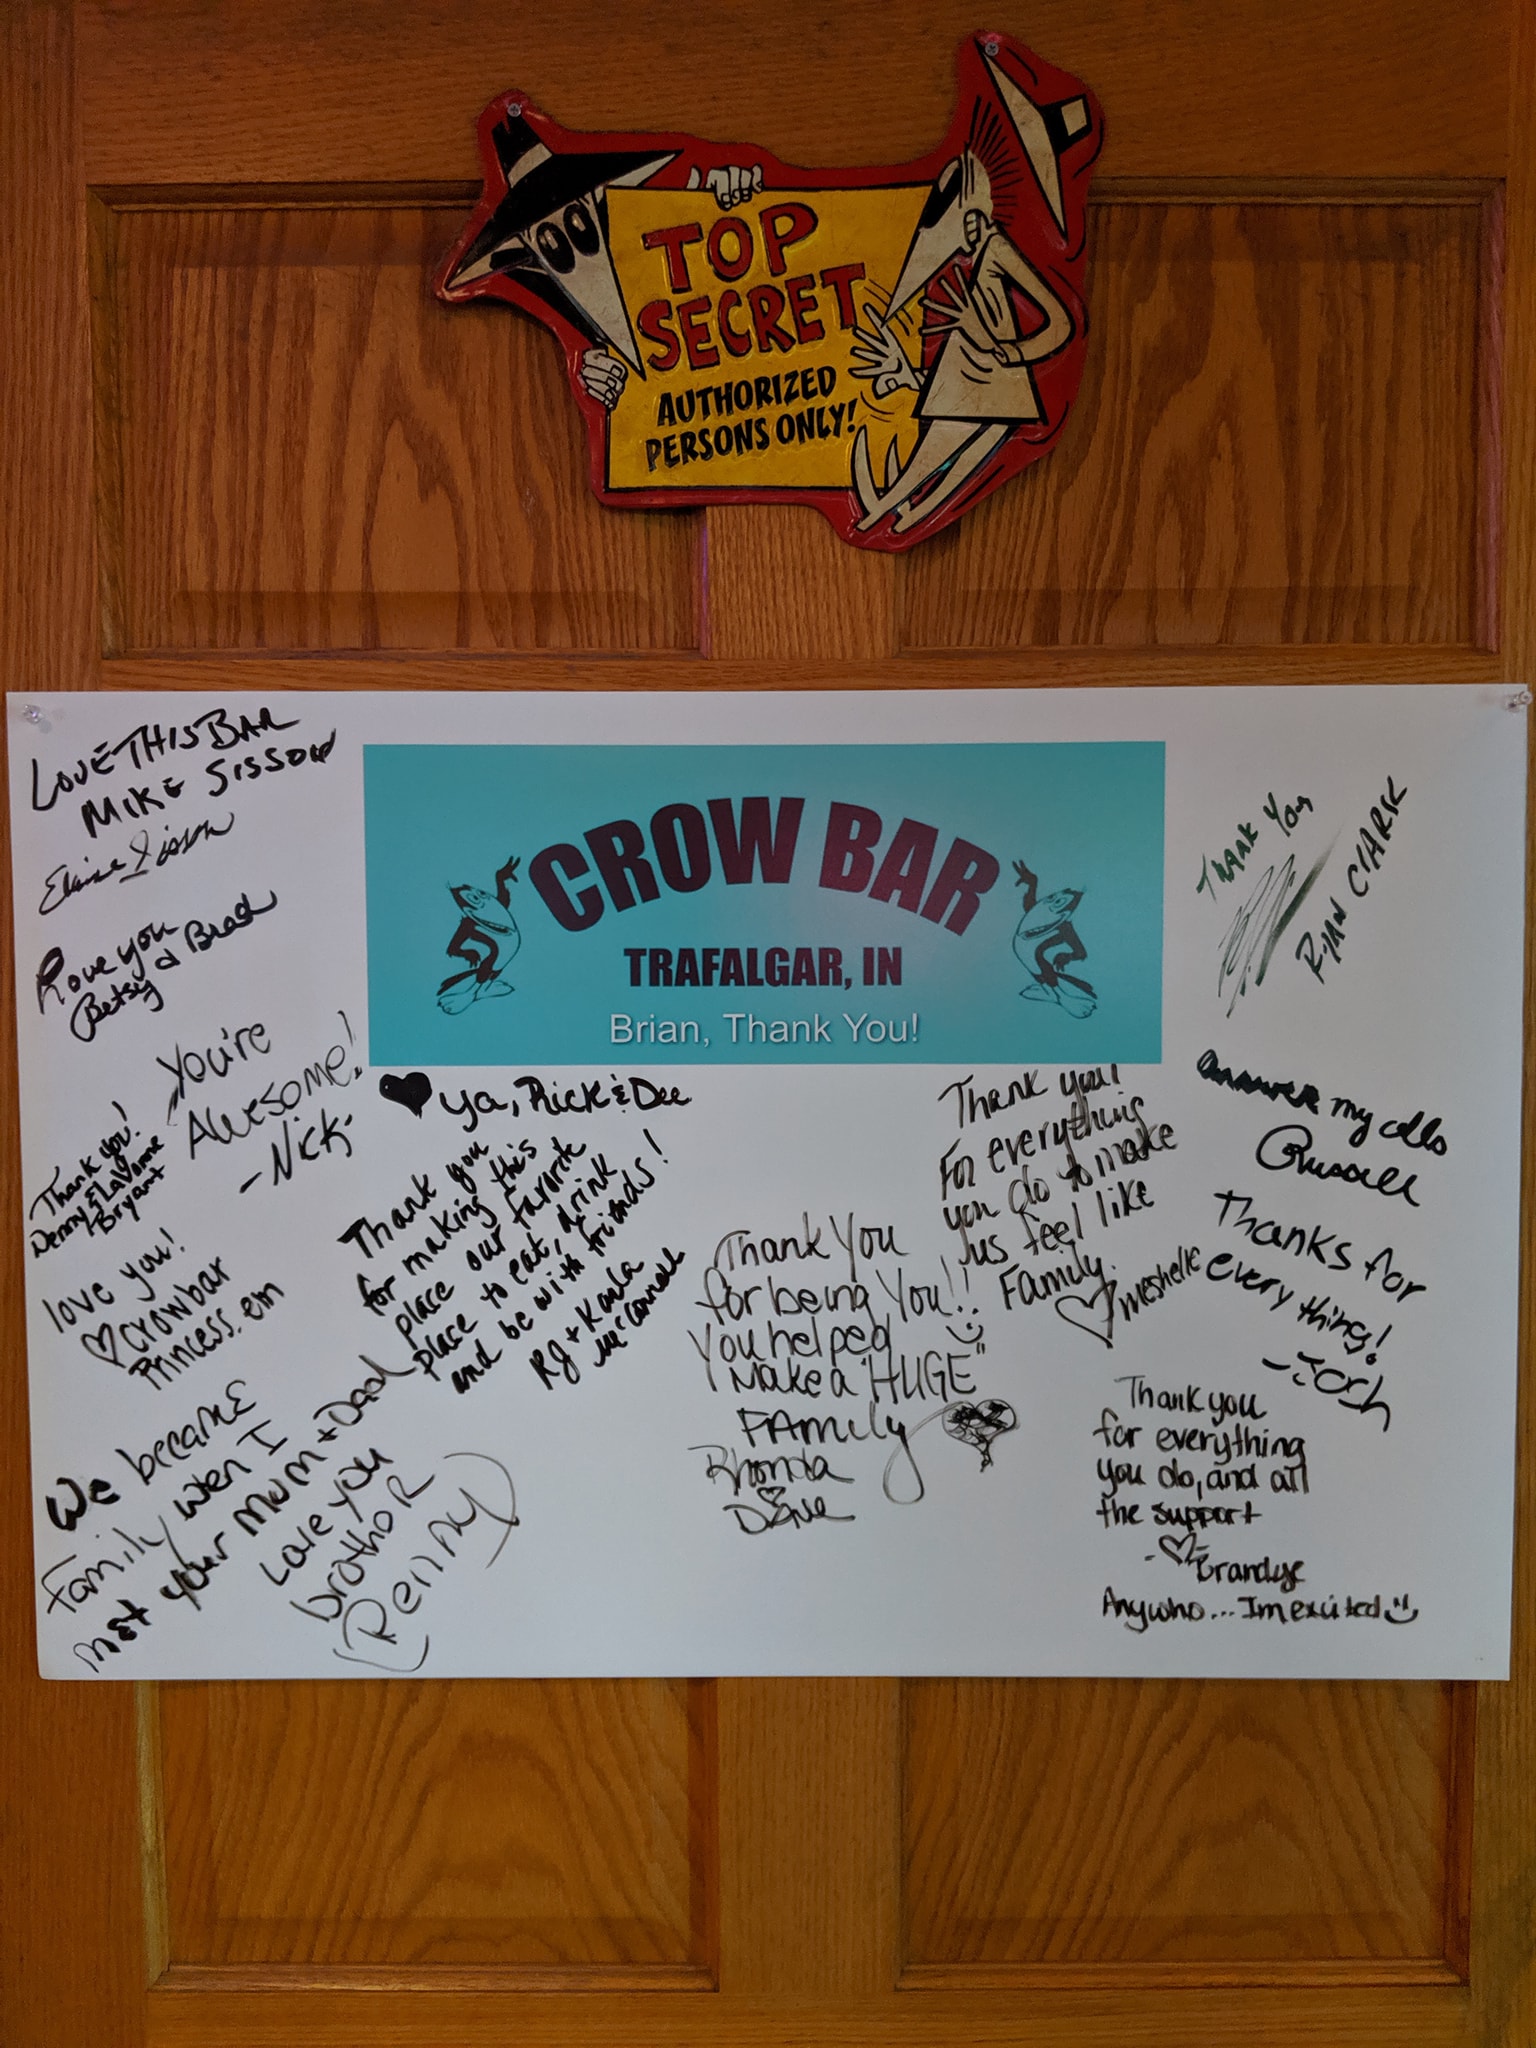 TOP
SECRET
AUTHORIZED
PERSONS ONLY!
LOVE THIS BAR
MIKE SISSON
Elaine Sisson
Love you
Betsy & Brad
You're
Awesome!
-Nick-
Thank you!
Denny & LaVonne
Bryant
love you!
♡ crowbar
Princess. em
We became
Family wen I
met your mom + Dad
Love you
brothor
(Penny)
CROW BAR
TRAFALGAR, IN
Brian, Thank You!
♥ ya, Rick & Dee
Thank you
for making this
place our favorite
place to eat, drink
and be with friends!
RJ + Karla
McConnell
Thank You
for being You!!
You helped
Make a "HUGE"
FAMily
Rhonda
Dave
Thank you!
For everything
you do to make
us feel like
Family.
♡ Meshelle
THANK YOU
RYAN CLARK
answer my calls
Russell
Thanks for
every thing!
-Josh
Thank you
for everything
you do, and all
the support
-♡-
Brandye
Anywho... Im excited